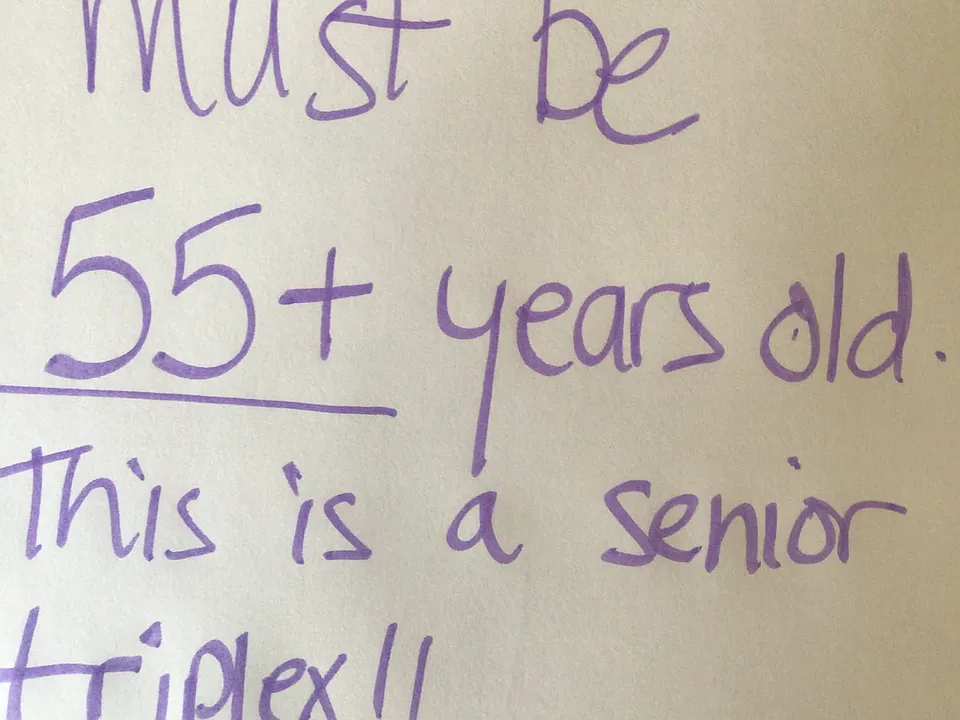 Must be
55+ years old.
This is a senior
triplex!!